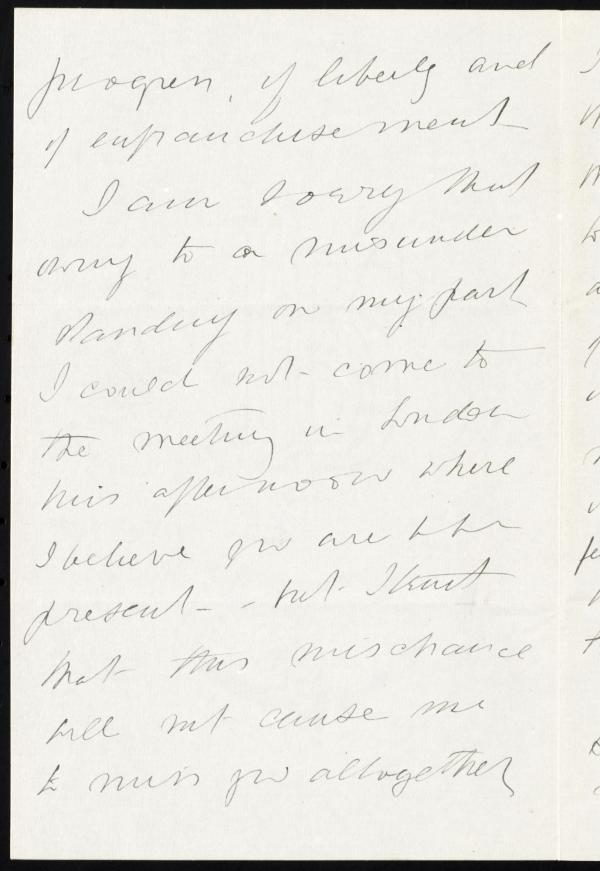 progress, of liberty and
of enfranchisement
I am sorry that
owing to a misunder
standing on my part
I could not come to
the meeting in London
this afternoon where
I believe you are to be
present - but I trust
that this mischance
will not cause me
to miss you altogether